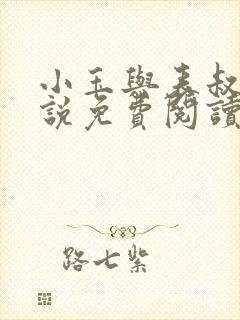 小玉與表叔
說免費閱讀
路七紫